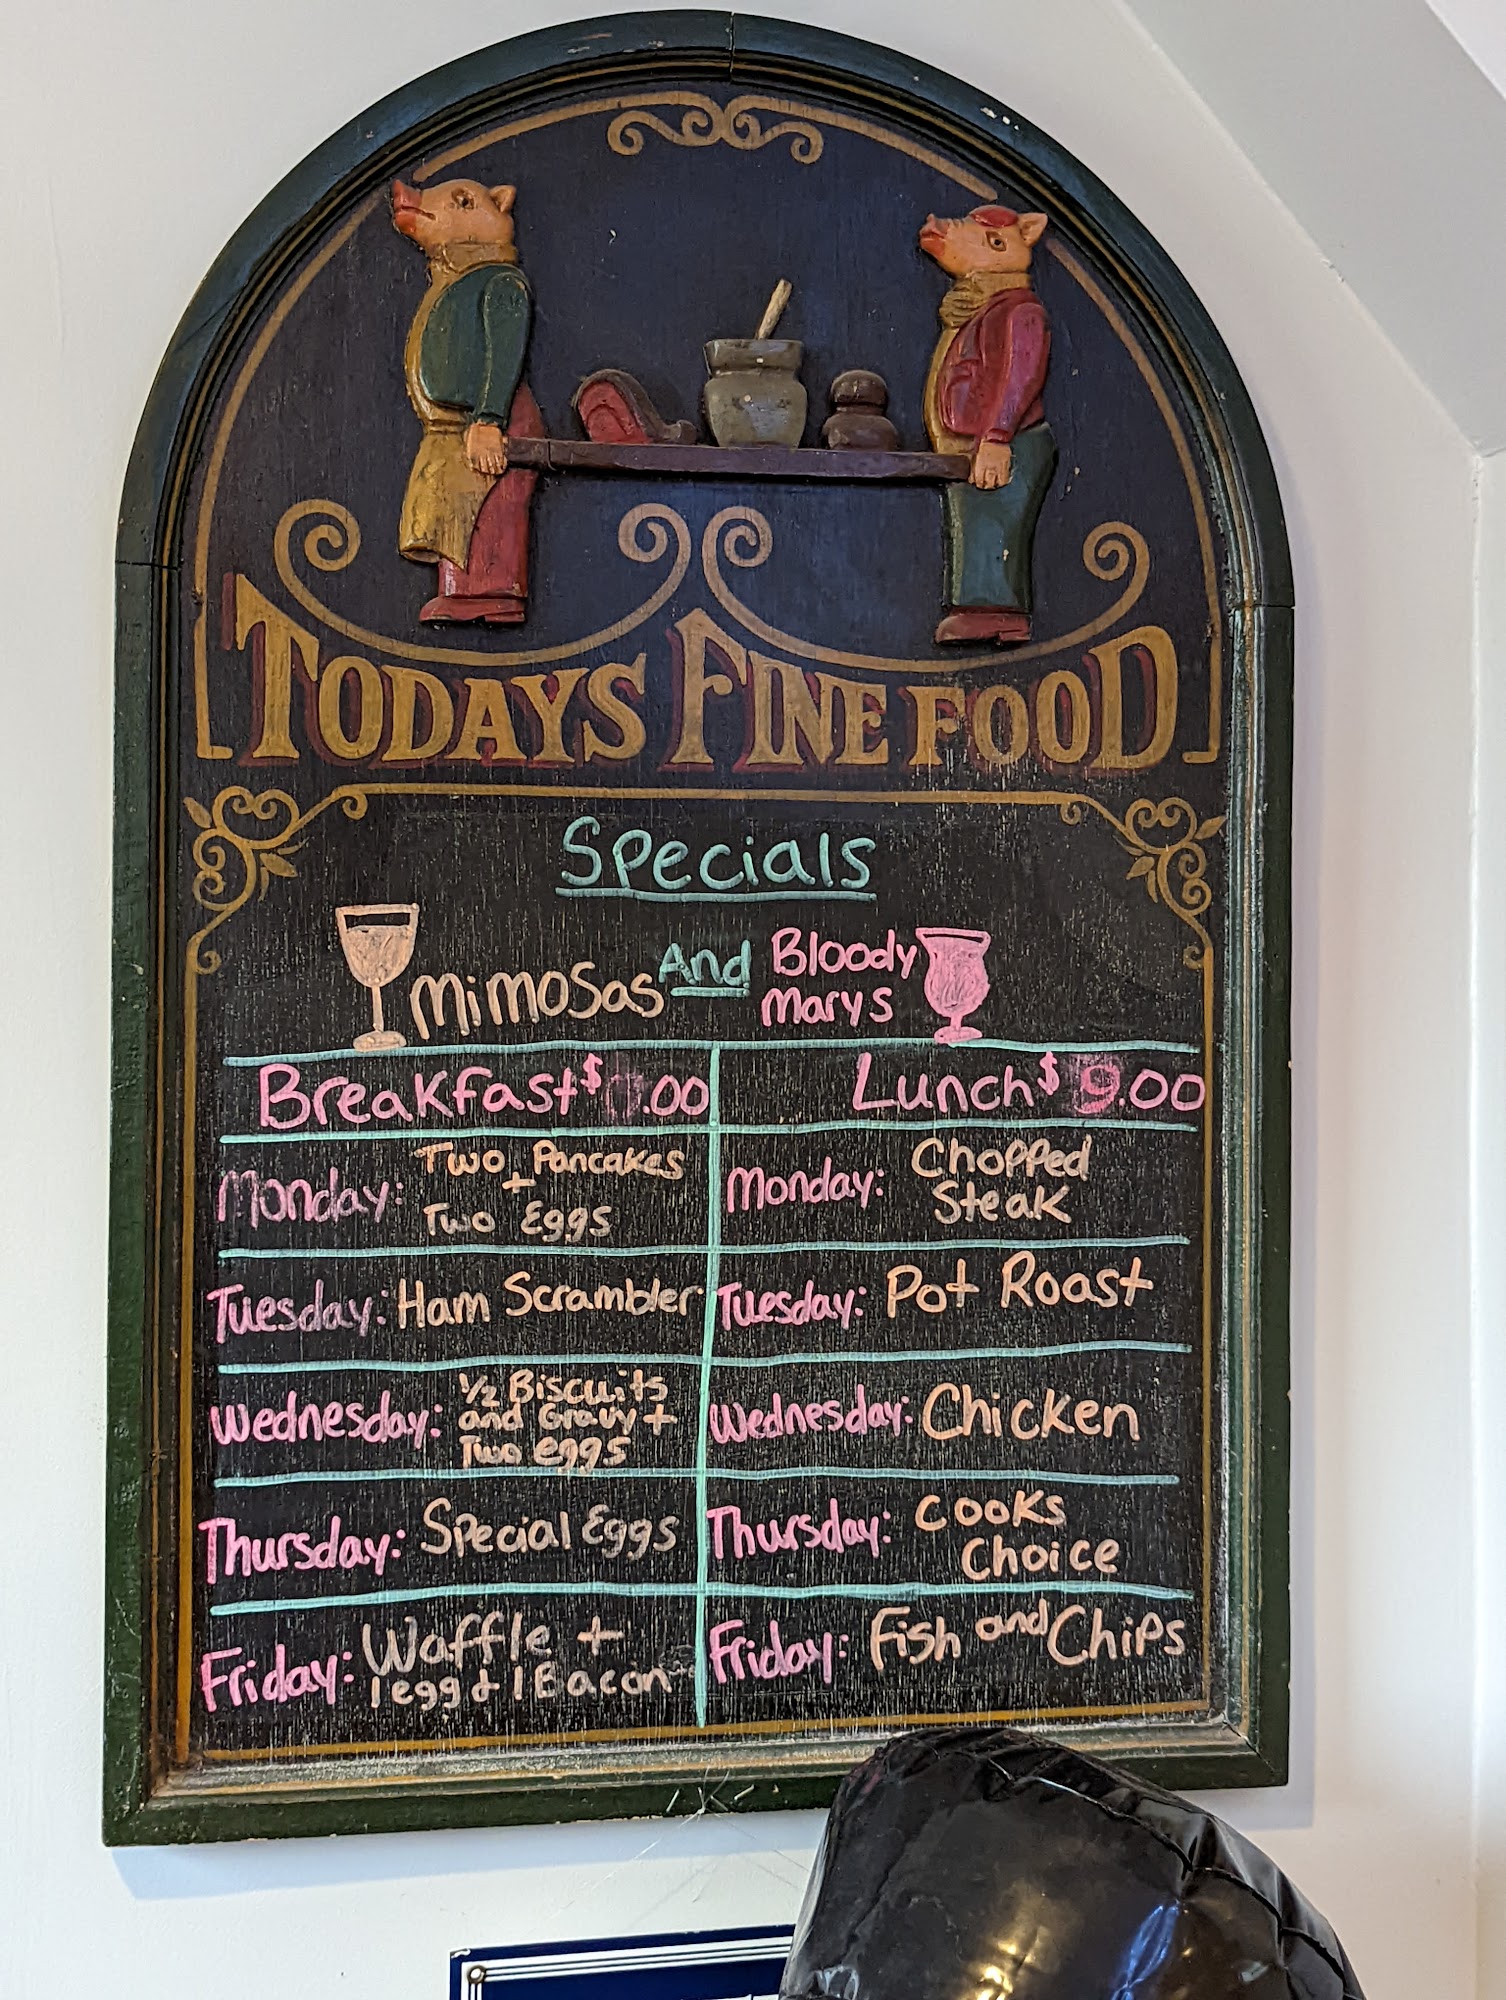 TODAYS FINE FOOD
Specials
Mimosas And Bloody
Marys
Breakfast $ .00
Lunch $ 9.00
Monday: Two Pancakes
+
Two Eggs
Monday: Chopped
Steak
Tuesday: Ham Scrambler
Tuesday: Pot Roast
Wednesday: 1/2 Biscuits
and Gravy +
Two eggs
Wednesday: Chicken
Thursday: Special Eggs
Thursday: Cooks
Choice
Friday: Waffle +
1 egg + 1 Bacon
Friday: Fish and Chips